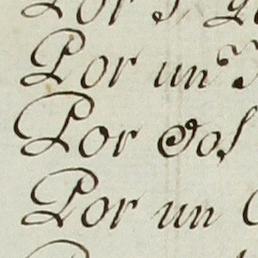 Por
Por un
Por dos
Por un